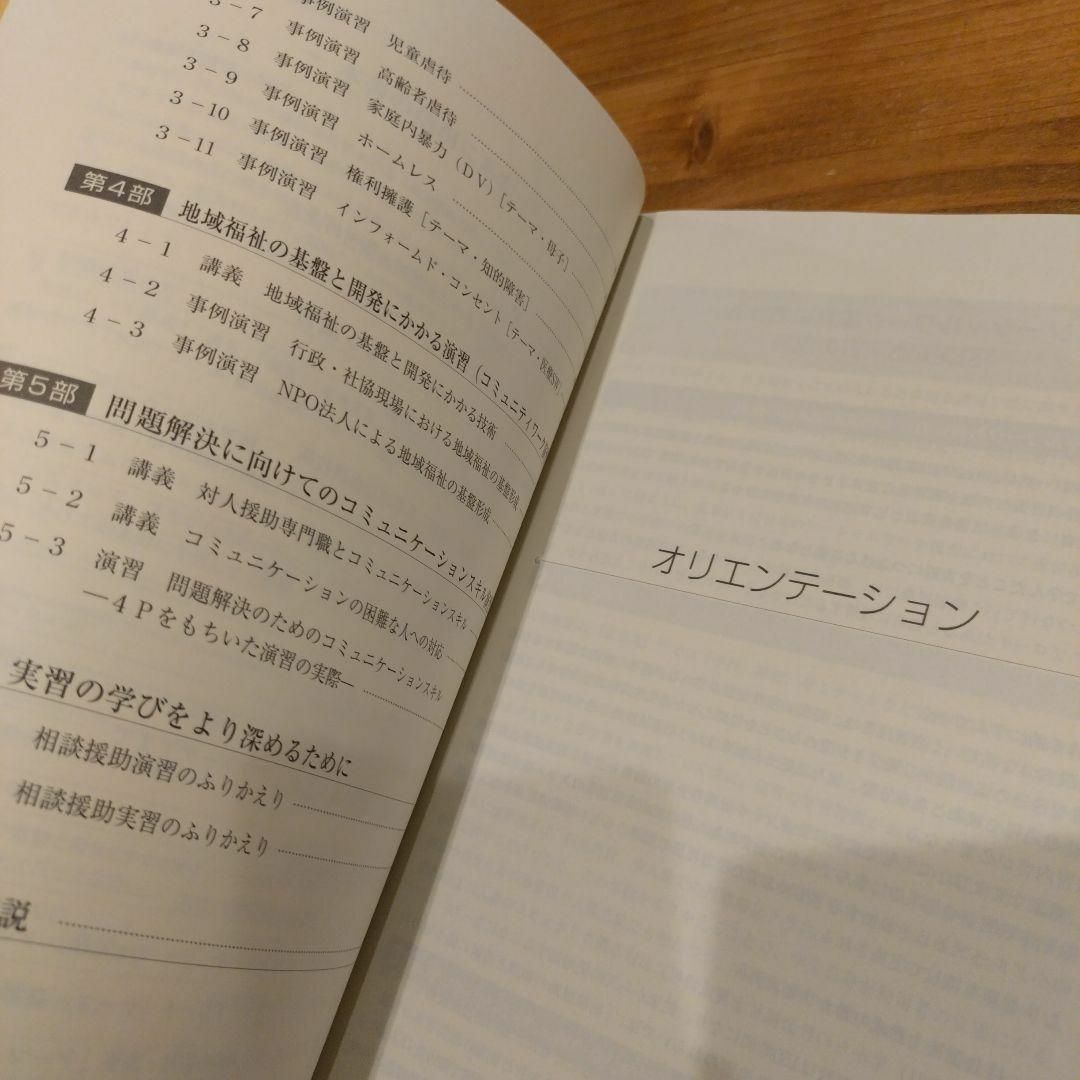 事例演習 児童虐待
3－7 事例演習 高齢者虐待
3－8 事例演習 家庭内暴力（DV）［テーマ・母子］
3－9 事例演習 ホームレス
3－10 事例演習 権利擁護［テーマ・知的障害］
3－11 事例演習 インフォームド・コンセント［テーマ・医療SW］
第4部 地域福祉の基盤と開発にかかる演習（コミュニティワーク
4－1 講義 地域福祉の基盤と開発にかかる技術
4－2 事例演習 行政・社協現場における地域福祉の基盤形成
4－3 事例演習 NPO法人による地域福祉の基盤形成
第5部 問題解決に向けてのコミュニケーションスキル
5－1 講義 対人援助専門職とコミュニケーションスキル
5－2 講義 コミュニケーションの困難な人への対応
5－3 演習 問題解決のためのコミュニケーションスキル
―４Ｐをもちいた演習の実際―
実習の学びをより深めるために
相談援助演習のふりかえり
相談援助実習のふりかえり
説
オリエンテーション